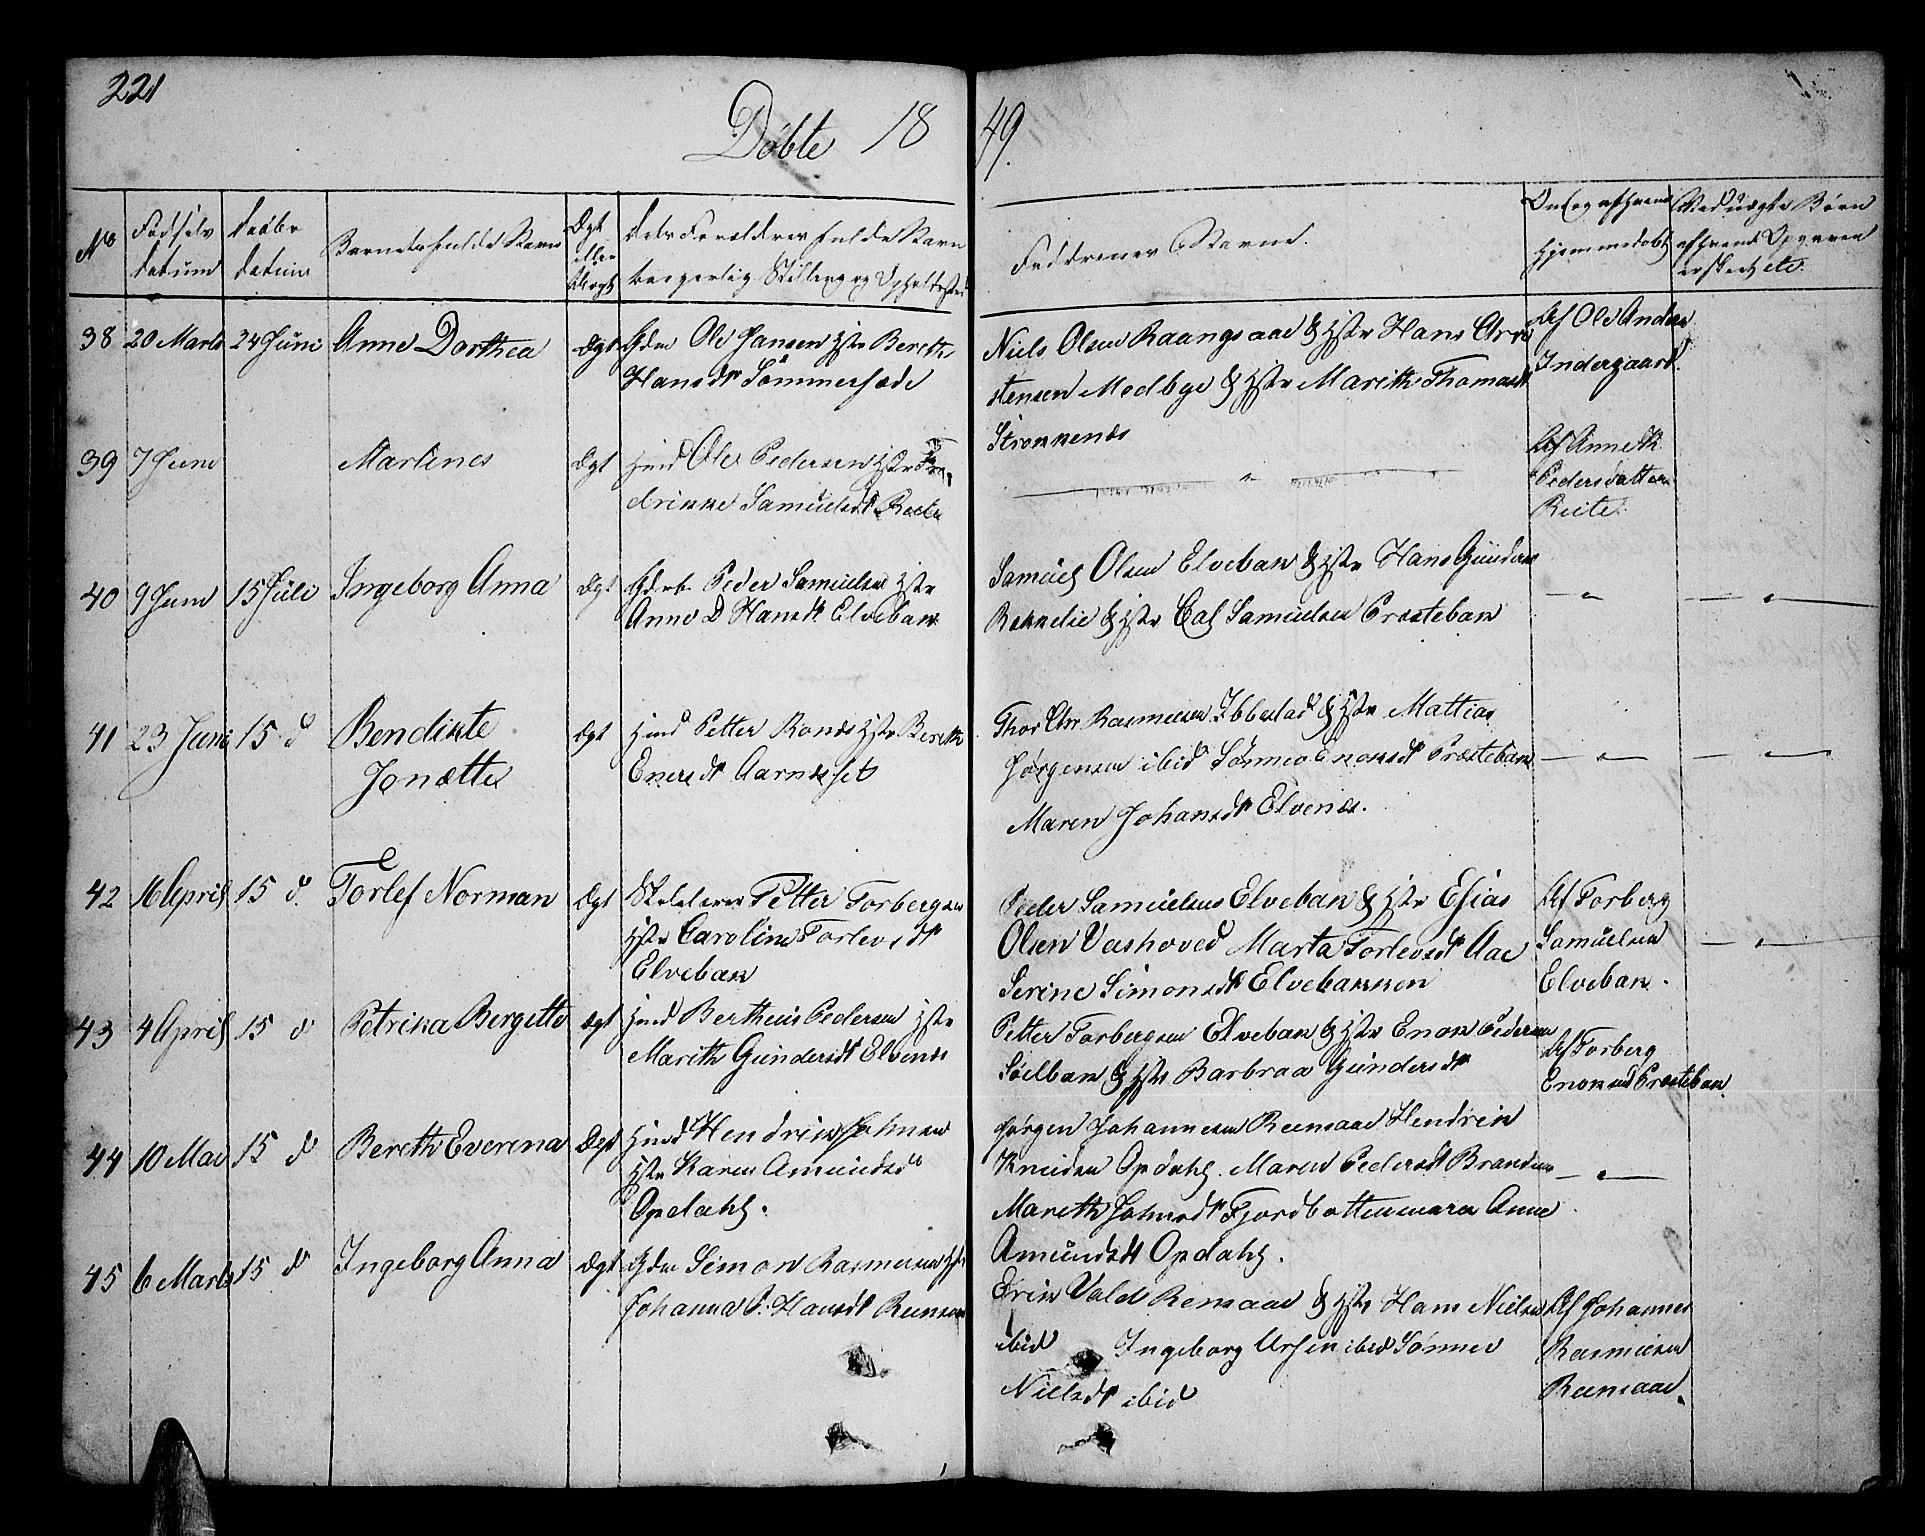 221
Døbte 18 49.
No
Fødsels datum
Daabs datum
Barnets fulde Navn
Dgt eller Uægt
dets Forældres fulde Navn
borgerlig Stilling og Opholdssted
Faddernes Navne.
Hjemmedøbt
38 20 Marts 24 Juni Anne Dorthea Ægt Gdm Ole Jansen Hstr Bereth
Hansdt Sommersæde
Niels Olsen Raangsaae & Hstr Hans Arn
stensen Medbye & Hstr Marith Thomasdt
Strønnenes
Af Ole Anders
Indergaard.
39 7 Juni Martines Ægt Hmd Ole Pedersen Hstr Fre
drikke Samuelsdt Reite
"
Af Anne K
Pedersdatter
Reite.
40 9 Juni 15 Juli Ingeborg Anna Ægt Gdbr. Peder Samuelsen Hstr
Anne D Hansdt Elvebak
Samuel Olsen Elvebak & Hstr Hans Gunders
& Hstr Samuelsen Præstebak
"
"
41 23 Juni 15 d Bendikte
Jonætte
Ægt Hmd Petter Hstr Bereth
Enersdt Aarnesset
Thor Chr Rasmusen Ibbestad & Hstr Mattias
Jørgensen ibid Sønneø Enoksdt Præstebak
Maren Johansdt Elvenæs.
"
"
42 16 April 15 d. Torlef Norman Ægt Petter Torbergsen
Hstr Caroline Torlevsdt
Elvebak
Peder Samuelsen Elvebak & Hstr Esias
Olsen Vashoved Marta Torlevsdt Aae
Serine Simonsdt Elvebakken
Af Torberg
Samuelsen
Elvebak.
"
43 4 April 15 d Petrika Bergette Ægt Hmd Bertheus Pedersen Hstr
Marith Gundersdt Elvenes
Petter Torbergsen Elvebak & Hstr Enok Pedersen
Søelbak & Hstr Barbraa Gundersdt
Af Torberg
Enoksen Præstebak
44 10 Mai 15 d Bereth Everena Ægt Hmd Hendrik Johnsen
Hstr Karen Amundsdt
Opdahl.
Jørgen Johannesen Reensaae Hendrik
Knudsen Opdahl. Maren Pedersdt
Mareth Johnsdt Fjordbotten Anne
Amundsdt Opdahl.
"
45 6 Marts 15 d Ingeborg Anna Ægt Gdm Simon Rasmusen Hstr
Johanna P: Hansdt Reensaa
Erik Vold Rensaae & Hstr Hans Nielsen
ibid Ingeborg Ursin ibid Sønneø
Nielsdt ibid
Af Johannes
Rasmusen
Reensaae.